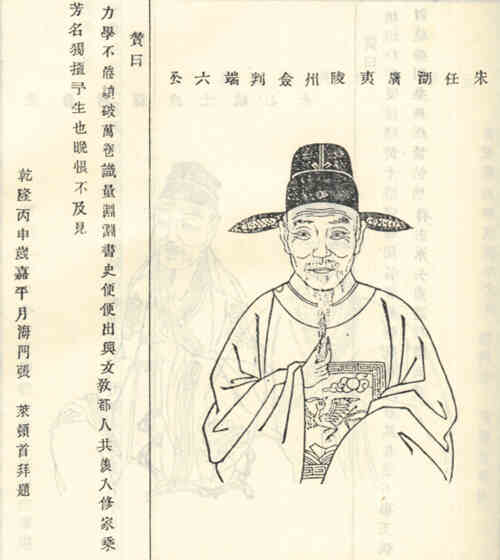 朱任湖廣夷陵州僉判端六公
贊曰
力學不倦讀破萬卷識量淵淵書史便便出興文教都人共羨入修家乘
芳名獨擅予生也晚恨不及見
乾隆丙申歲嘉平月海門張 萊頓首拜題